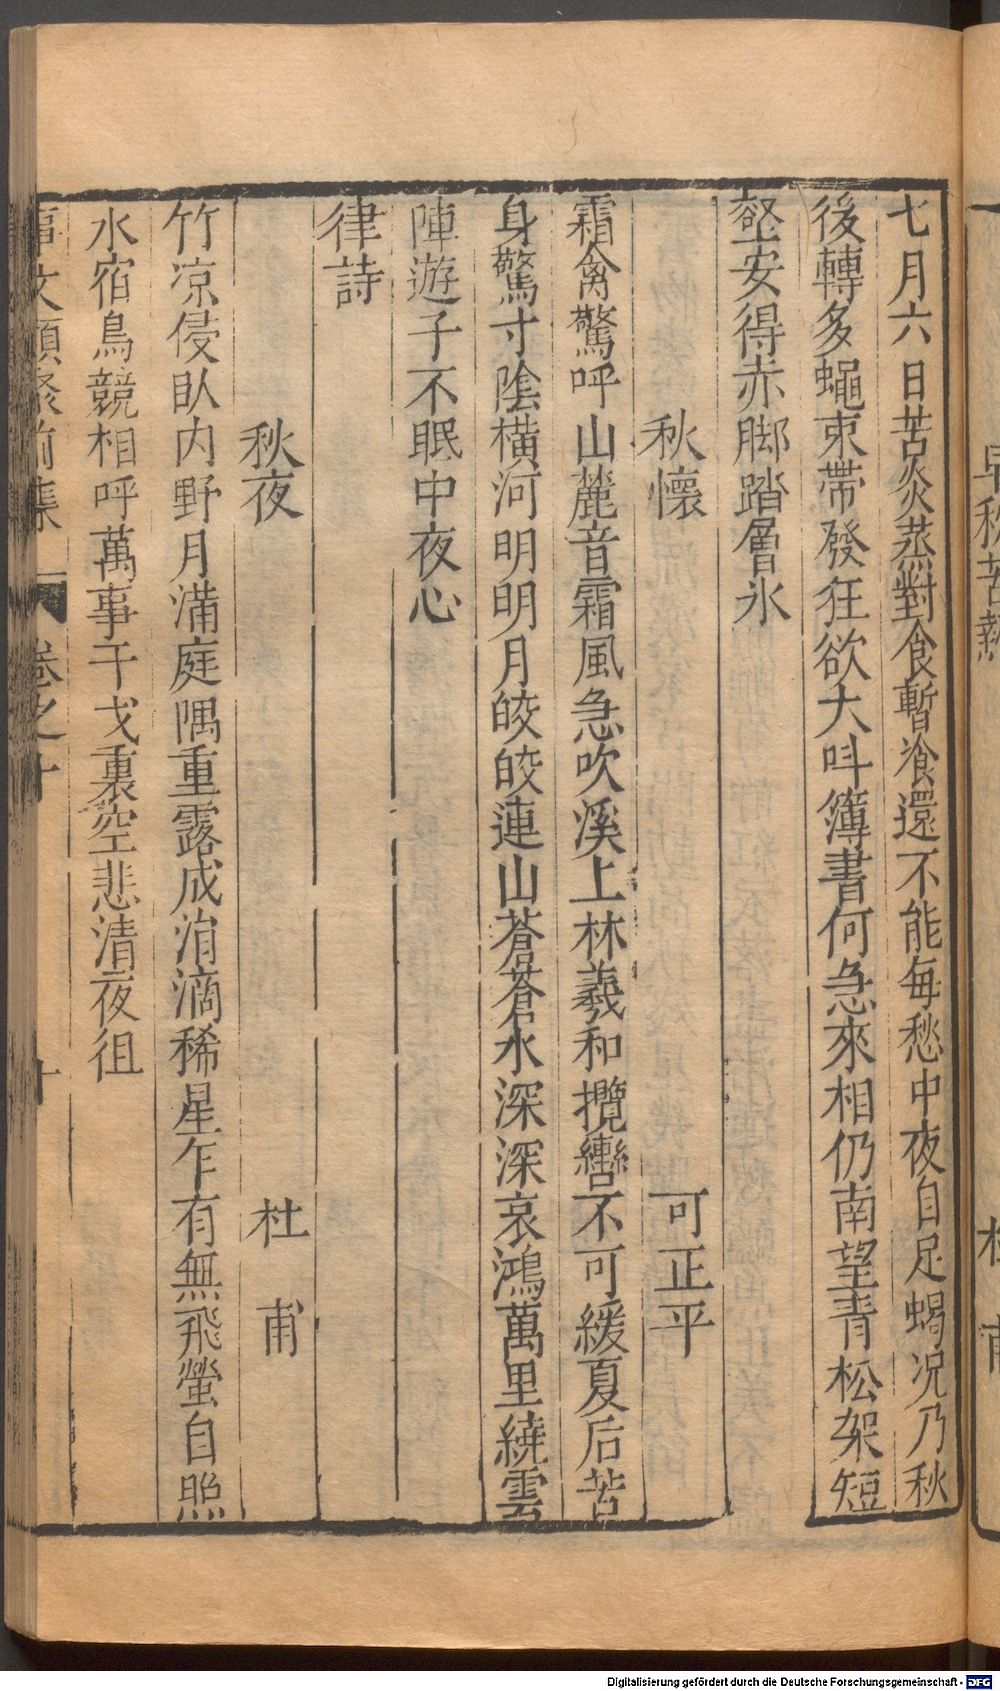 早秋苦熱　杜甫
七月六日苦炎蒸對食暫飡還不能每愁中夜自足蝎况乃秋
後轉多蠅束帶發狂欲大呌簿書何急來相仍南望青松架短
壑安得赤脚踏層氷
秋懷　可正平
霜禽驚呼山麓音霜風急吹溪上林羲和攬轡不可緩夏后苦
身驚寸陰橫河明明月皎皎連山蒼蒼水深深哀鴻萬里繞雲
陣遊子不眠中夜心
律詩
秋夜　杜甫
竹凉侵臥内野月滿庭隅重露成涓滴稀星乍有無飛螢自照
水宿鳥競相呼萬事干戈裏空悲清夜徂
事文類聚前集　卷之十　十
Digitalisierung gefördert durch die Deutsche Forschungsgemeinschaft - DFG